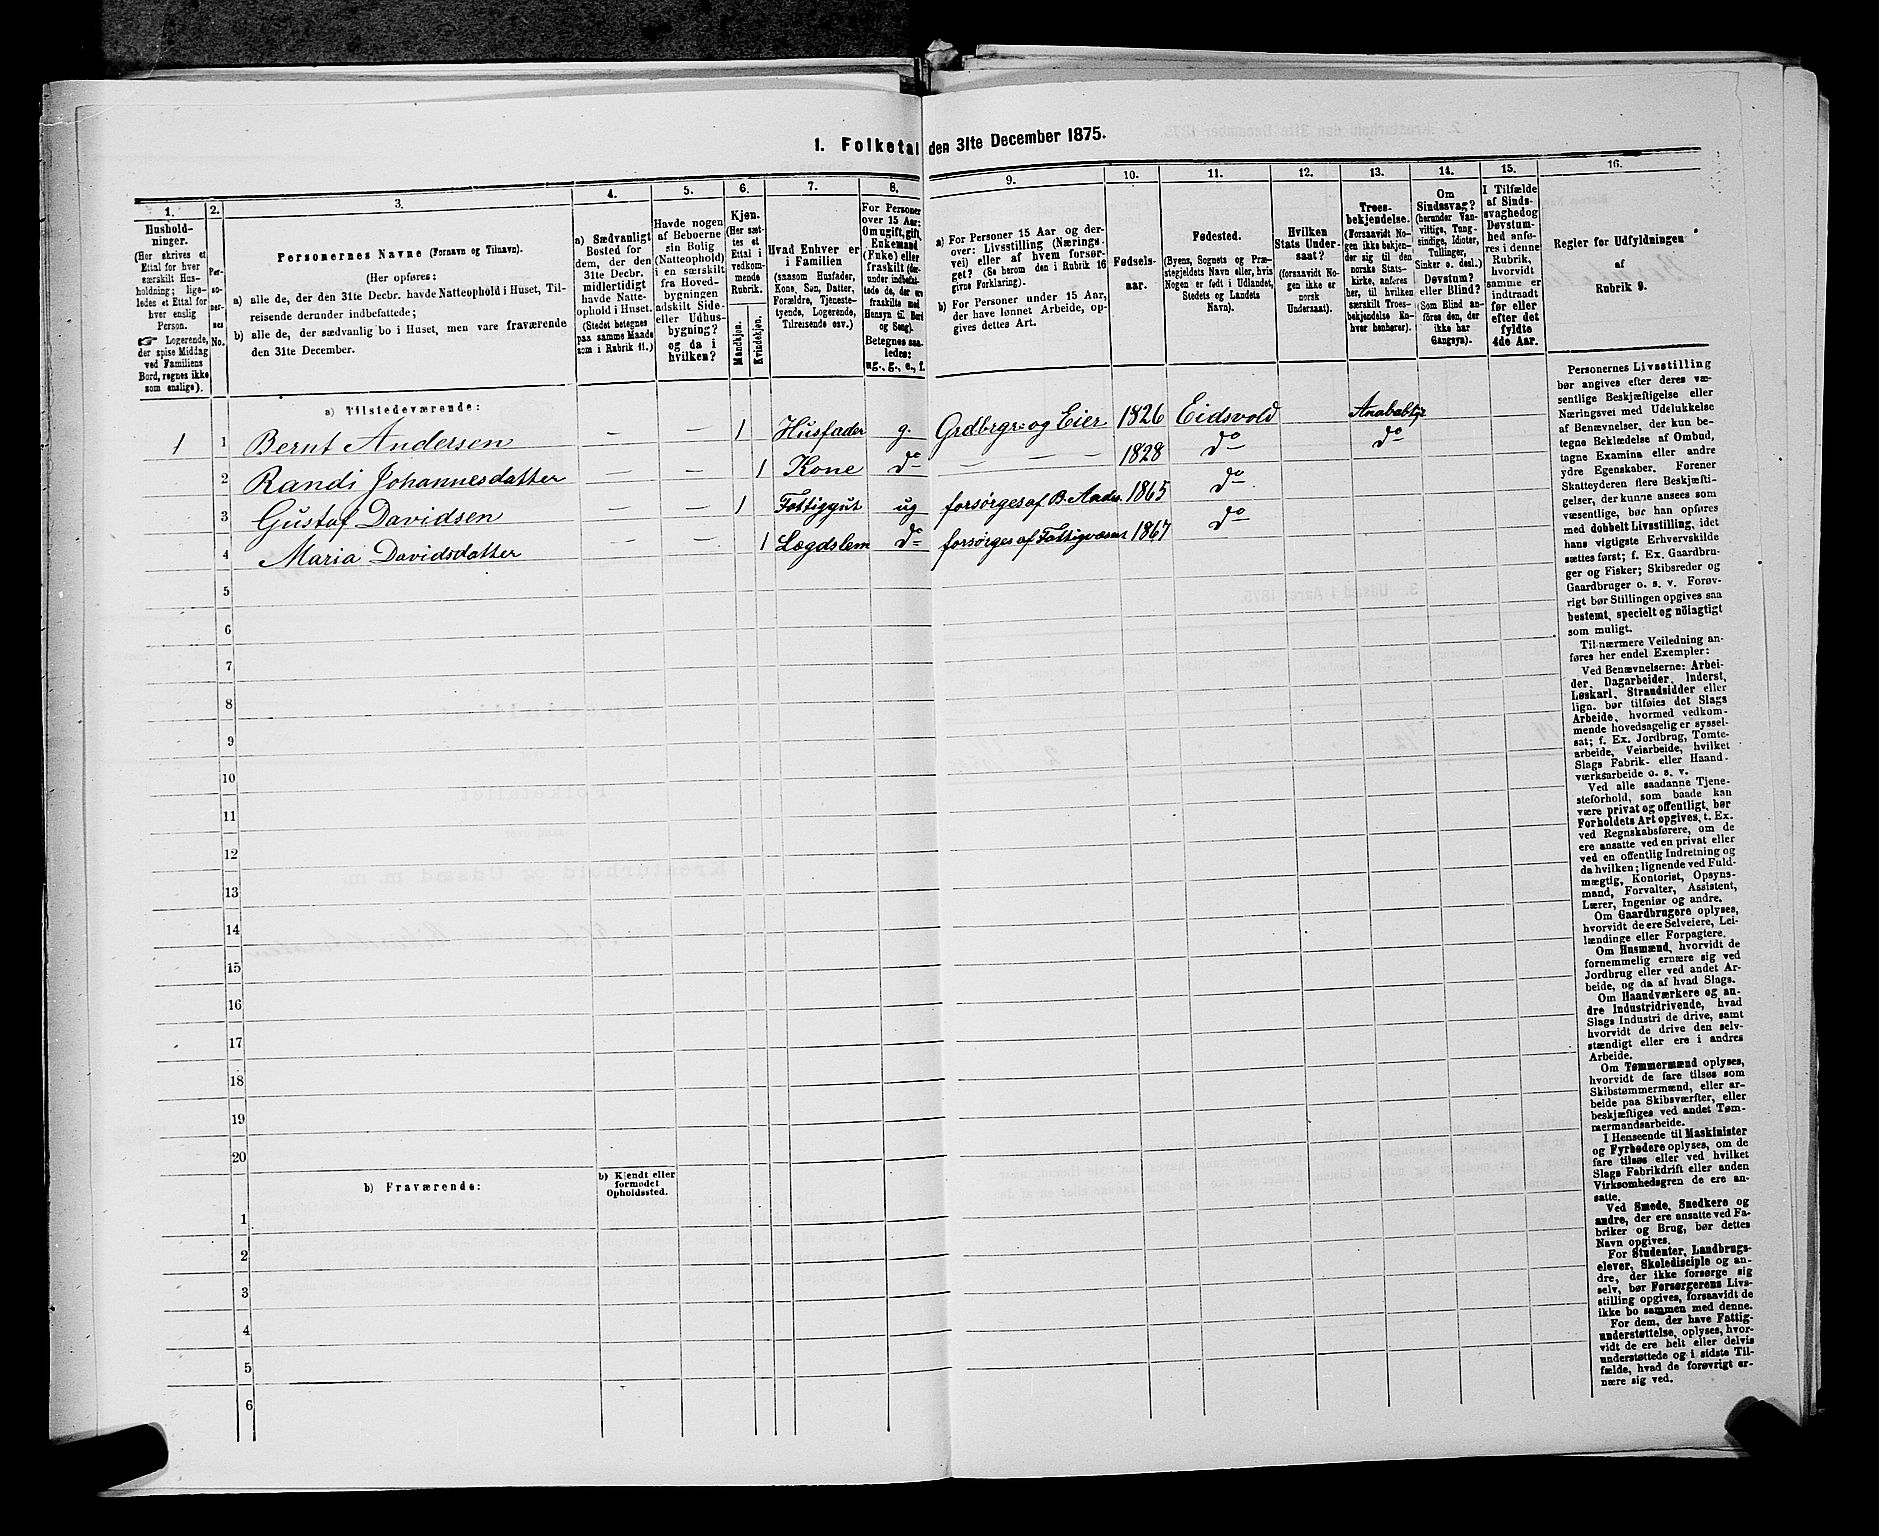 1. Folketal den 31te December 1875.
1.
Hushold-
ninger.
(Her skrives et
Ettal for hver
særskilt Hus-
holdning; lige-
ledes et Ettal for
hver enslig
Person.
☞ Logerende,
der spise Middag
ved Familiens
Bord, regnes ikke
som enslige).
2.
Per-
so-
ner-
nes
No.
3.
Personernes Navne (Fornavn og Tilnavn).
(Her opføres:
a) alle de, der den 31te Decbr. havde Natteophold i Huset, Til-
reisende derunder indbefattede;
b) alle de, der sædvanlig bo i Huset, men vare fraværende
den 31te December.
4.
a) Sædvanligt
Bosted for
dem, der den
31te Decbr.
midlertidigt
havde Natte-
ophold i Huset.
(Stedet betegnes
paa samme Maade
som i Rubrik 11.)
5.
Havde nogen
af Beboerne
sin Bolig
(Natteophold)
i en særskilt
fra Hoved-
bygningen
adskilt Side-
eller Udhus-
bygning?
og da i
hvilken?
6.
Kjøn.
(Her sæt-
tes et
Ettal i
vedkom-
mende
Rubrik.
Mandkjøn.
Kvindekjøn.
7.
Hvad Enhver er
i Familien
(saasom Husfader,
Kone, Søn, Datter,
Forældre, Tjeneste-
tyende, Logerende,
Tilreisende osv.)
8.
For Personer
over 15 Aar:
Om ugift, gift,
Enkemand
(Enke) eller
fraskilt (der-
under indbefat-
tede de, der ere
fraskilte med
Hensyn til Bord
og Seng).
Betegnes saa-
ledes:
ug., g., e., f.
9.
a) For Personer 15 Aar og der-
over: Livsstilling (Nærings-
vei) eller af hvem forsør-
get? (Se herom den i Rubrik 16
givne Forklaring).
b) For Personer under 15 Aar,
der have lønnet Arbeide, op-
gives dettes Art.
10.
Fødsels-
aar.
11.
Fødested.
(Byens, Sognets og Præ-
stegjeldets Navn eller, hvis
Nogen er født i Udlandet,
Stedets og Landets
Navn).
12.
Hvilken
Stats Under-
saat?
(forsaavidt No-
gen ikke er
norsk
Undersaat).
13.
Troes-
bekjendelse.
(Forsaavidt No-
gen ikke bekjen-
der sig til den
norske Stats-
kirke, anføres
her, til hvilken
særskilt Troes-
bekjendelse En-
hver henhører).
14.
Om
Sindssvag?
(herunder Van-
vittige, Tung-
sindige, Idioter,
Tullinger,
Sinker o. desl.)
Døvstum?
eller Blind?
(Som Blind an-
føres den, der
ikke har
Gangsyn).
15.
I Tilfælde
af Sinds-
svaghed og
Døvstum-
hed anfø-
res i denne
Rubrik,
hvorvidt
samme er
indtraadt
før eller
efter det
fyldte
4de Aar.
16.
Regler for Udfyldningen
af
Rubrik 9.
a) Tilstedeværende:
1 1 Bernt Andersen — — 1 Husfader g. Grdbrgr. og Eier 1826 Eidsvold Anababtist
2 Randi Johannesdatter — — 1 Kone do — — — 1828 do do
3 Gustaf Davidsen — — 1 Fattiggut ug forsørges af B. Anders. 1865 do
4 Maria Davidsdatter — — 1 Lægdslem do forsørges af Fattigvæsnt 1867 do
5
6
7
8
9
10
11
12
13
14
15
16
17
18
19
20
b) Fraværende:
b) Kjendt eller
formodet
Opholdssted.
1
2
3
4
5
6
Personernes Livsstilling
bør angives efter deres væ-
sentlige Beskjæftigelse eller
Næringsvei med Udelukkelse
af Benævnelser, der kun be-
tegne Beklædelse af Ombud,
tagne Examina eller andre
ydre Egenskaber. Forener
Skatteyderen flere Beskjæfti-
gelser, der kunne ansees som
væsentlige, bør han opføres
med dobbelt Livsstilling, idet
hans vigtigste Erhvervskilde
sættes først; f. Ex. Gaardbru-
ger og Fisker; Skibsreder og
Gaardbruger o. s. v. Forøv-
rigt bør Stillingen opgives saa
bestemt, specielt og nöiagtigt
som muligt.
Til nærmere Veiledning an-
føres her endel Exempler:
Ved Benævnelserne: Arbei-
der, Dagarbeider, Inderst,
Løskarl, Strandsidder eller
lign. bør tilføies det Slags
Arbeide, hvormed vedkom-
mende hovedsagelig er syssel-
sat; f. Ex. Jordbrug, Tomte-
arbeide, Veiarbeide, hvilket
Slags Fabrik- eller Haand-
værksarbeide o. s. v.
Ved alle saadanne Tjene-
steforhold, som baade kan
være privat og offentligt, bør
Forholdets Art opgives, t. Ex.
ved Regnskabsførere, om de
ere ansatte ved en privat eller
ved en offentlig Indretning og
da hvilken; lignende ved Fuld-
mægtig, Kontorist, Opsyns-
mand, Forvalter, Assistent,
Lærer, Ingeniør og andre.
Om Gaardbrugere oplyses,
hvorvidt de ere Selveiere, Lei-
lændinge eller Forpagtere.
Om Husmænd, hvorvidt de
fornemmelig ernære sig ved
Jordbrug eller ved andet Ar-
beide, og da af hvad Slags.
Om Haandværkere og an-
dre Industridrivende, hvad
Slags Industri de drive, samt
hvorvidt de drive den selv-
stændigt eller ere i andres
Arbeide.
Om Tømmermænd oplyses,
hvorvidt de fare tilsøs som
Skibstømmermænd, eller ar-
beide paa Skibsværfter, eller
beskjæftiges ved andet Tøm-
mermandsarbeide.
I Henseende til Maskinister
og Fyrbødere oplyses, om de
fare tilsøs eller ved hvilket
Slags Fabrikdrift eller anden
Virksomhedsgren de ere an-
satte.
Ved Smede, Snedkere og
andre, der ere ansatte ved Fa-
briker og Brug, bør dettes
Navn opgives.
For Studenter, Landbrugs-
elever, Skoledisciple og an-
dre, der ikke forsørge sig
selv, bør Forsørgerens Livs-
stilling opgives, forsaavidt de
ikke bo sammen med denne.
For dem, der have Fattig-
understøttelse, oplyses, hvor-
vidt de ere helt eller delvis
understøttede og i sidste Til-
fælde, hvad de forøvrigt er-
nære sig ved.